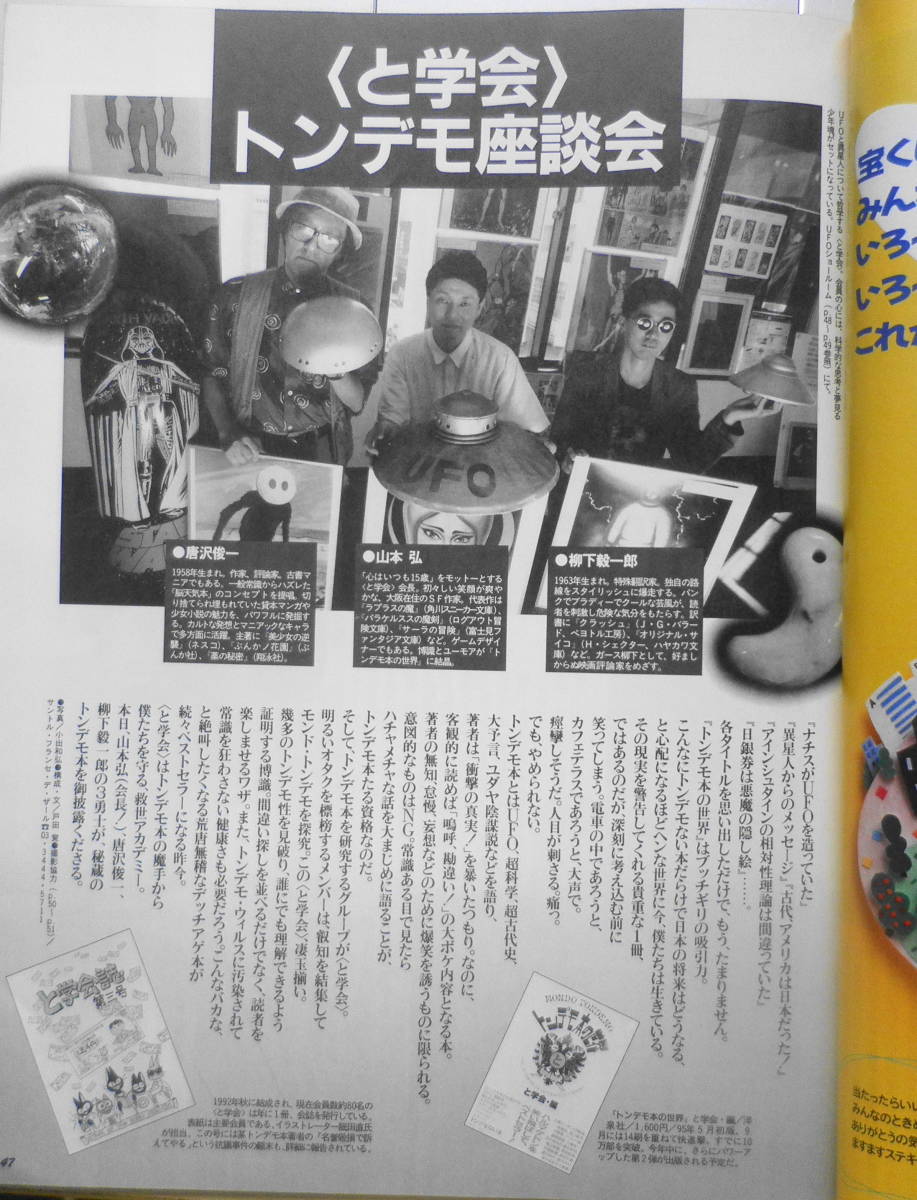 〈と学会〉
トンデモ座談会
UFOと異星人について哲学する〈と学会〉。会員の心には、科学的な思考と夢見る
少年魂がセットになっている。UFOショールーム(p.48〜p.49参照)にて。
UFO
●唐沢俊一
1958年生まれ。作家、評論家、古書マ
ニアでもある。一般常識からハズレた
「脳天気本」のコンセプトを提唱、切
り捨てられ埋もれていた貸本マンガや
少女小説の魅力を、パワフルに発掘す
る。カルトな発想とマニアックなキャラ
で多方面に活躍。主著に「美少女の逆
襲」(ネスコ)、「ぶんかノ花園」(ぶ
んか社)、「薬の秘密」(翔泳社)。
●山本 弘
「心はいつも15歳」をモットーとする
〈と学会〉会長。初々しい笑顔が爽や
かな、大阪在住のSF作家。代表作は
「ラプラスの魔」(角川スニーカー文庫)、
「パラケルススの魔剣」(ログアウト冒
険文庫)、「サーラの冒険」(富士見フ
ァンタジア文庫)など。ゲームデザイ
ナーでもある。博識とユーモアが「ト
ンデモ本の世界」に結晶。
●柳下毅一郎
1963年生まれ。特殊翻訳家。独自の路
線をスタイリッシュに爆走する。パン
クでブラディーでクールな芸風が、読
者を刺激し危険な気分をもたらす。訳
書に「クラッシュ」(J・G・バラー
ド、ペヨトル工房)、「オリジナル・サ
イコ」(H・シェクター、ハヤカワ文
庫)など。ガース柳下として、好まし
からぬ映画評論家をめざす。
『ナチスがUFOを造っていた』
『異星人からのメッセージ』『古代、アメリカは日本だった!』
『アインシュタインの相対性理論は間違っていた』
『日銀券は悪魔の隠し絵』……。
各タイトルを思い出しただけで、もう、たまりません。
『トンデモ本の世界』はブッチギリの吸引力。
こんなにトンデモない本だらけで日本の将来はどうなる、
と心配になるほどヘンな世界に今、僕たちは生きている。
その現実を警告してくれる貴重な1冊、
ではあるのだが、深刻に考え込む前に
笑ってしまう。電車の中であろうと、
カフェテラスであろうと、大声で。
痙攣しそうだ。人目が刺さる。痛っ。
でも、やめられない。
トンデモ本とはUFO、超科学、超古代史、
大予言、ユダヤ陰謀説などを語り、
著者は「衝撃の真実!」を暴いたつもり。なのに、
客観的に読めば「嗚呼、勘違い!」の大ボケ内容となる本。
著者の無知、怠慢、妄想などのために爆笑を誘うものに限られる。
意図的なものはNG。常識ある目で見たら
ハチャメチャな話を大まじめに語ることが、
トンデモ本たる資格なのだ。
そして、トンデモ本を研究するグループが〈と学会〉。
明るいオタクを標榜するメンバーは、叡知を結集して
モンド・トンデモを探究。この〈と学会〉、凄玉揃い。
幾多のトンデモ性を見破り、誰にでも理解できるよう
証明する博識。間違い探しを並べるだけでなく、読者を
楽しませるワザ。また、トンデモ・ウィルスに汚染されて
常識を狂わさない健康さも必要だろう。こんなバカな、
と絶叫したくなる荒唐無稽なデッチアゲ本が
続々ベストセラーになる昨今。
〈と学会〉はトンデモ本の魔手から
僕たちを守る、救世アカデミー。
本日、山本弘(会長!)、唐沢俊一、
柳下毅一郎の3勇士が、秘蔵の
トンデモ本を御披露くださる。
●写真/小田和弘●構成・文/戸田 寛●撮影協力(p.50〜p.51)/
サントル・フランセ・デ・ザール
と学会誌
第三号
1992年秋に結成され、現在会員数約80名の
〈と学会〉は年に1冊、会誌を発行している。
表紙は主要会員である、イラストレーター眠田直氏
が担当。この号には某トンデモ本著者の『名誉毀損で訴
えてやる』という抗議事件の顛末も、詳細に報告されている。
MONDO TONDEMO
トンデモ本の世界
と学会・編
『トンデモ本の世界』と学会・編/洋
泉社/1,600円/'95年5月初版、9
月には14刷を重ねて快進撃、すでに10
万部を突破。今年中に、さらにパワーア
ップした第2弾が出版される予定だ。
47
宝く
みん
いろ
いろ
これ
当たったらいい
みんなのときめ
ありがとうの気
ますますステキ